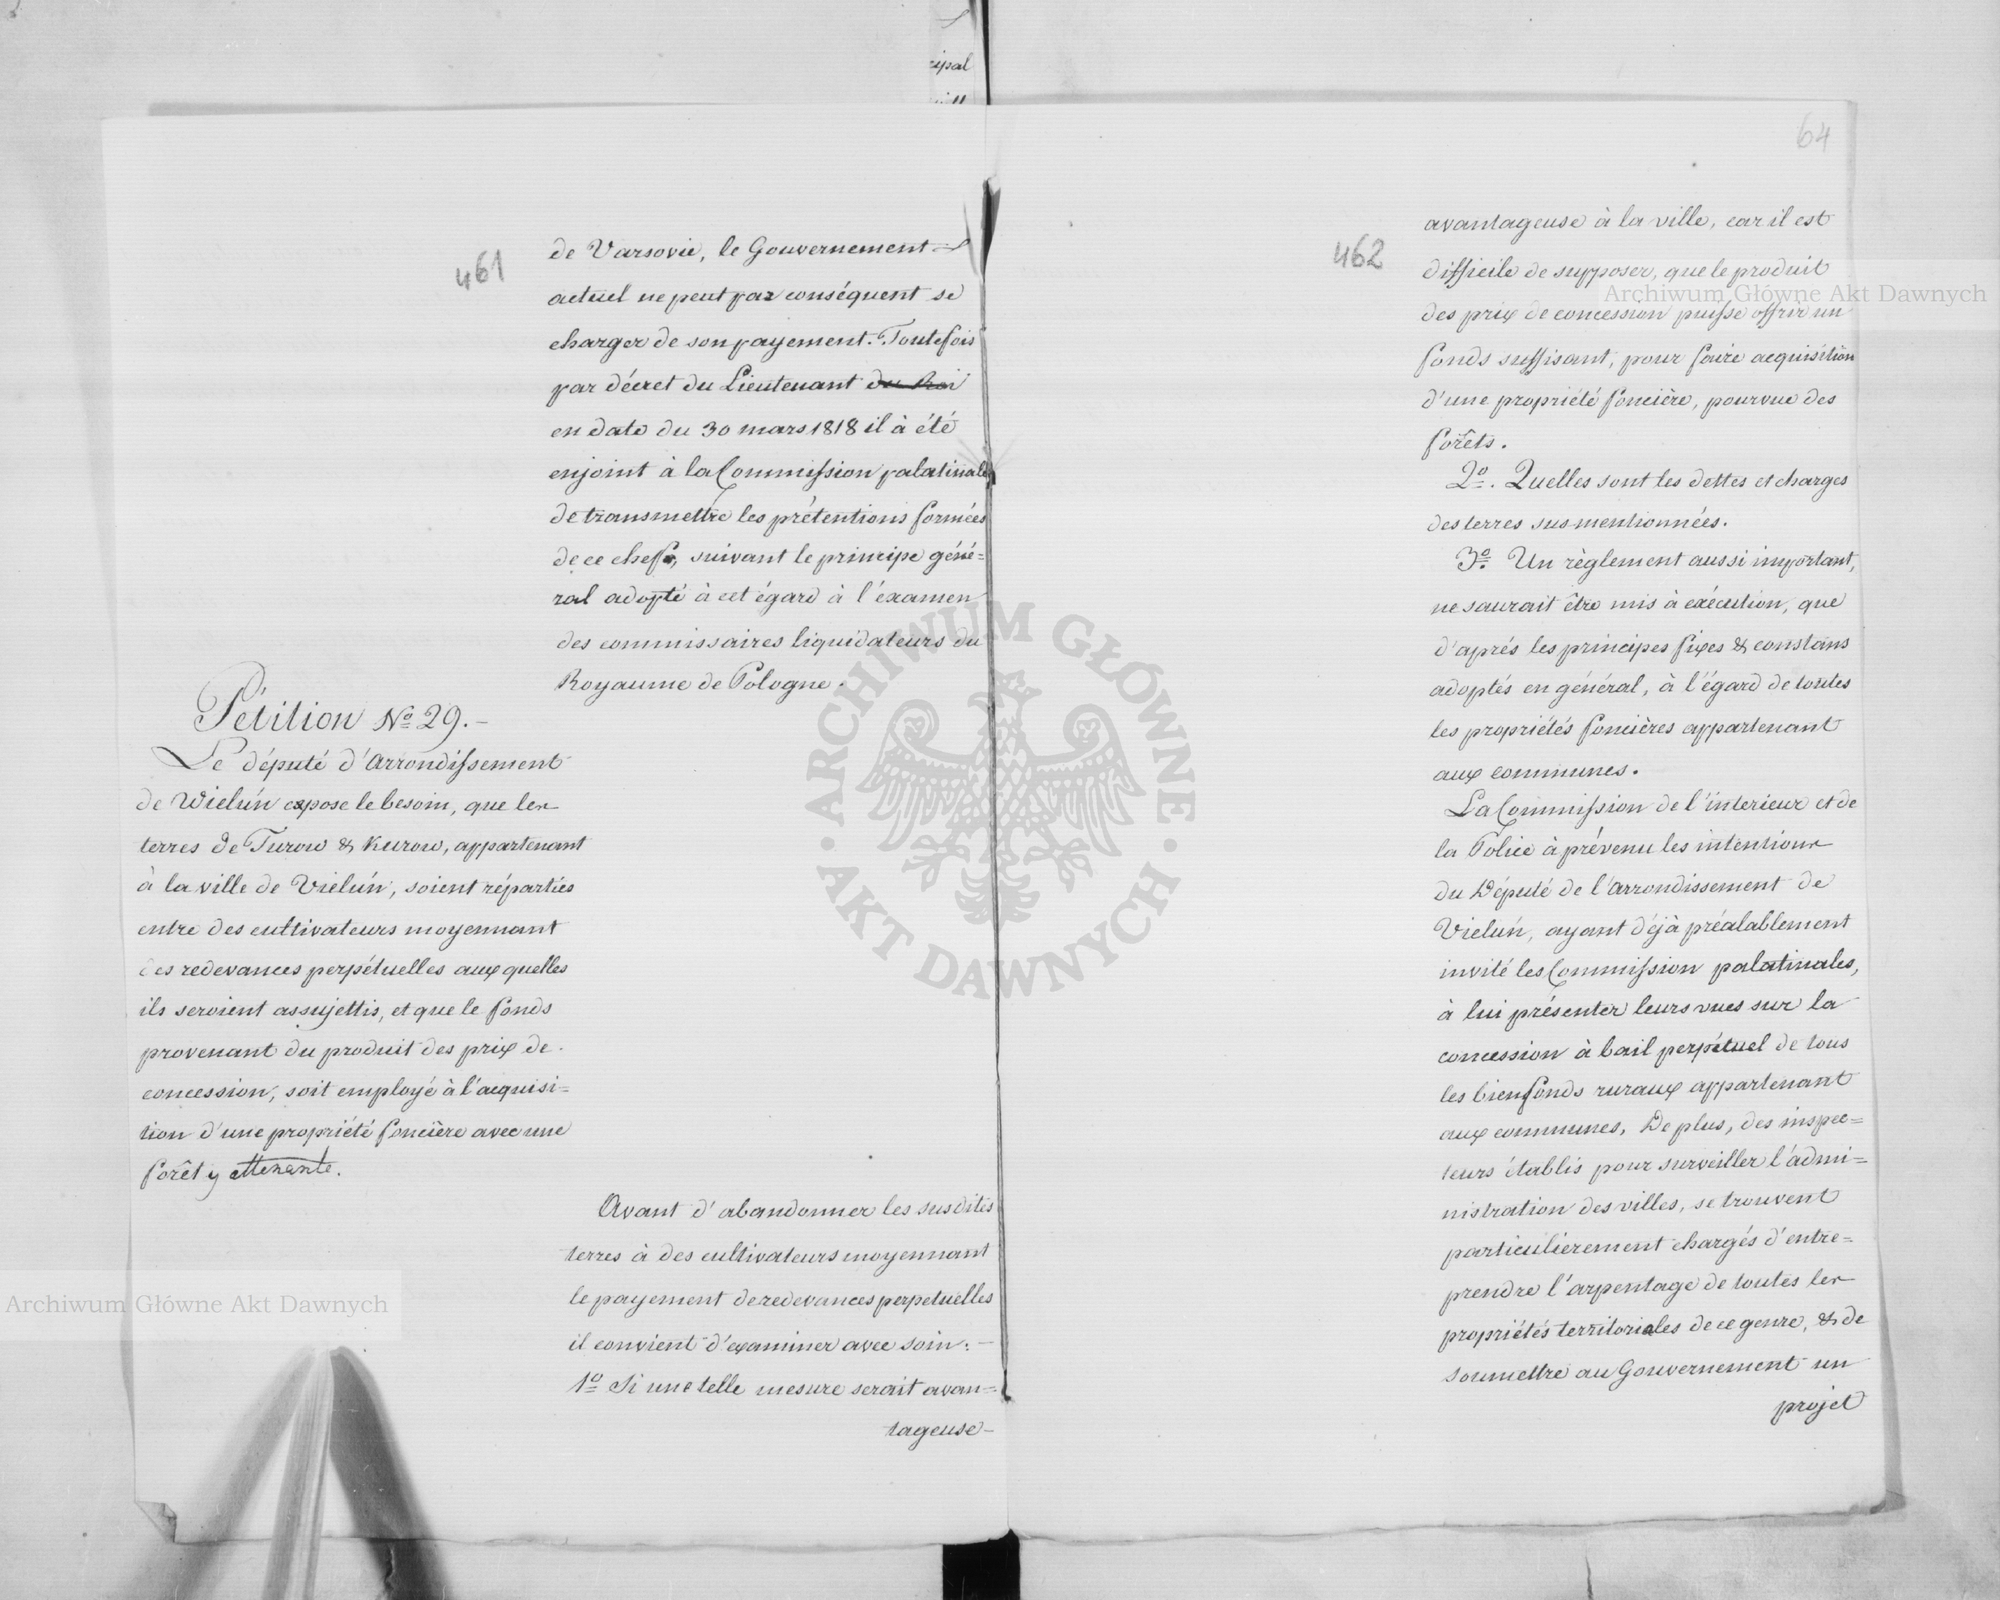 ripal
461
de Varsovie, le Gouvernement
actuel ne peut par conséquent se
charger de son payement. Toutefois
par décret du Lieutenant du Roi
en date du 30 mars 1818 il à été
enjoint à la Commission palatinale
de transmettre les prétentions formées
de ce chef, suivant le principe géné=
ral adopté à cet égard à l'éxamen
des commissaires liquidateurs du
Royaume de Pologne.
Pétition No 29.-
Le député d'Arrondissement
de Wieluń expose le besoin, que les
terres de Turow & Kurow, appartenant
à la ville de Vieluń, soient réparties
entre des cultivateurs moyennant
des redevances perpétuelles aux quelles
ils seroient assujettis, et que le fonds
provenant du produit des prix de
concession, soit employé à l'acquisi=
tion d'une propriété foncière avec une
forêt y attenante.
Avant d'abandonner les susdites
terres à des cultivateurs moyennant
le payement de redevances perpetuelles
il convient d'examiner avec soin: -
1o Si une telle mesure serait avan=
tageuse-
64
462
avantageuse à la ville, car il est
difficile de supposer, que le produit
des prix de concession puisse offrir un
fonds suffisant, pour faire acquisition
d'une propriété foncière, pourvue des
forêts.
2o. Quelles sont les dettes et charges
des terres susmentionnées.
3o. Un règlement aussi important,
ne saurait être mis à exécution, que
d'aprés les principes fixes & constans
adoptés en général, à l'égard de toutes
les propriétés foncières appartenant
aux communes.
La Commission de l'interieur et de
la Police à prévenu les intentions
du Député de l'arrondissement de
Vieluń, ayant déjà préalablement
invité les Commission palatinales,
à lui présenter leurs vues sur la
concession à bail perpétuel de tous
les bienfonds ruraux appartenant
aux communes. De plus, des inspec=
teurs établis pour surveiller l'admi=
nistration des villes, se trouvent
particulierement chargés d'entre=
prendre l'arpentage de toutes les
propriétés territoriales de ce genre, & de
soumettre au Gouvernement un
projet
Archiwum Główne Akt Dawnych
Archiwum Główne Akt Dawnych
ARCHIWUM GŁÓWNE · AKT DAWNYCH ·